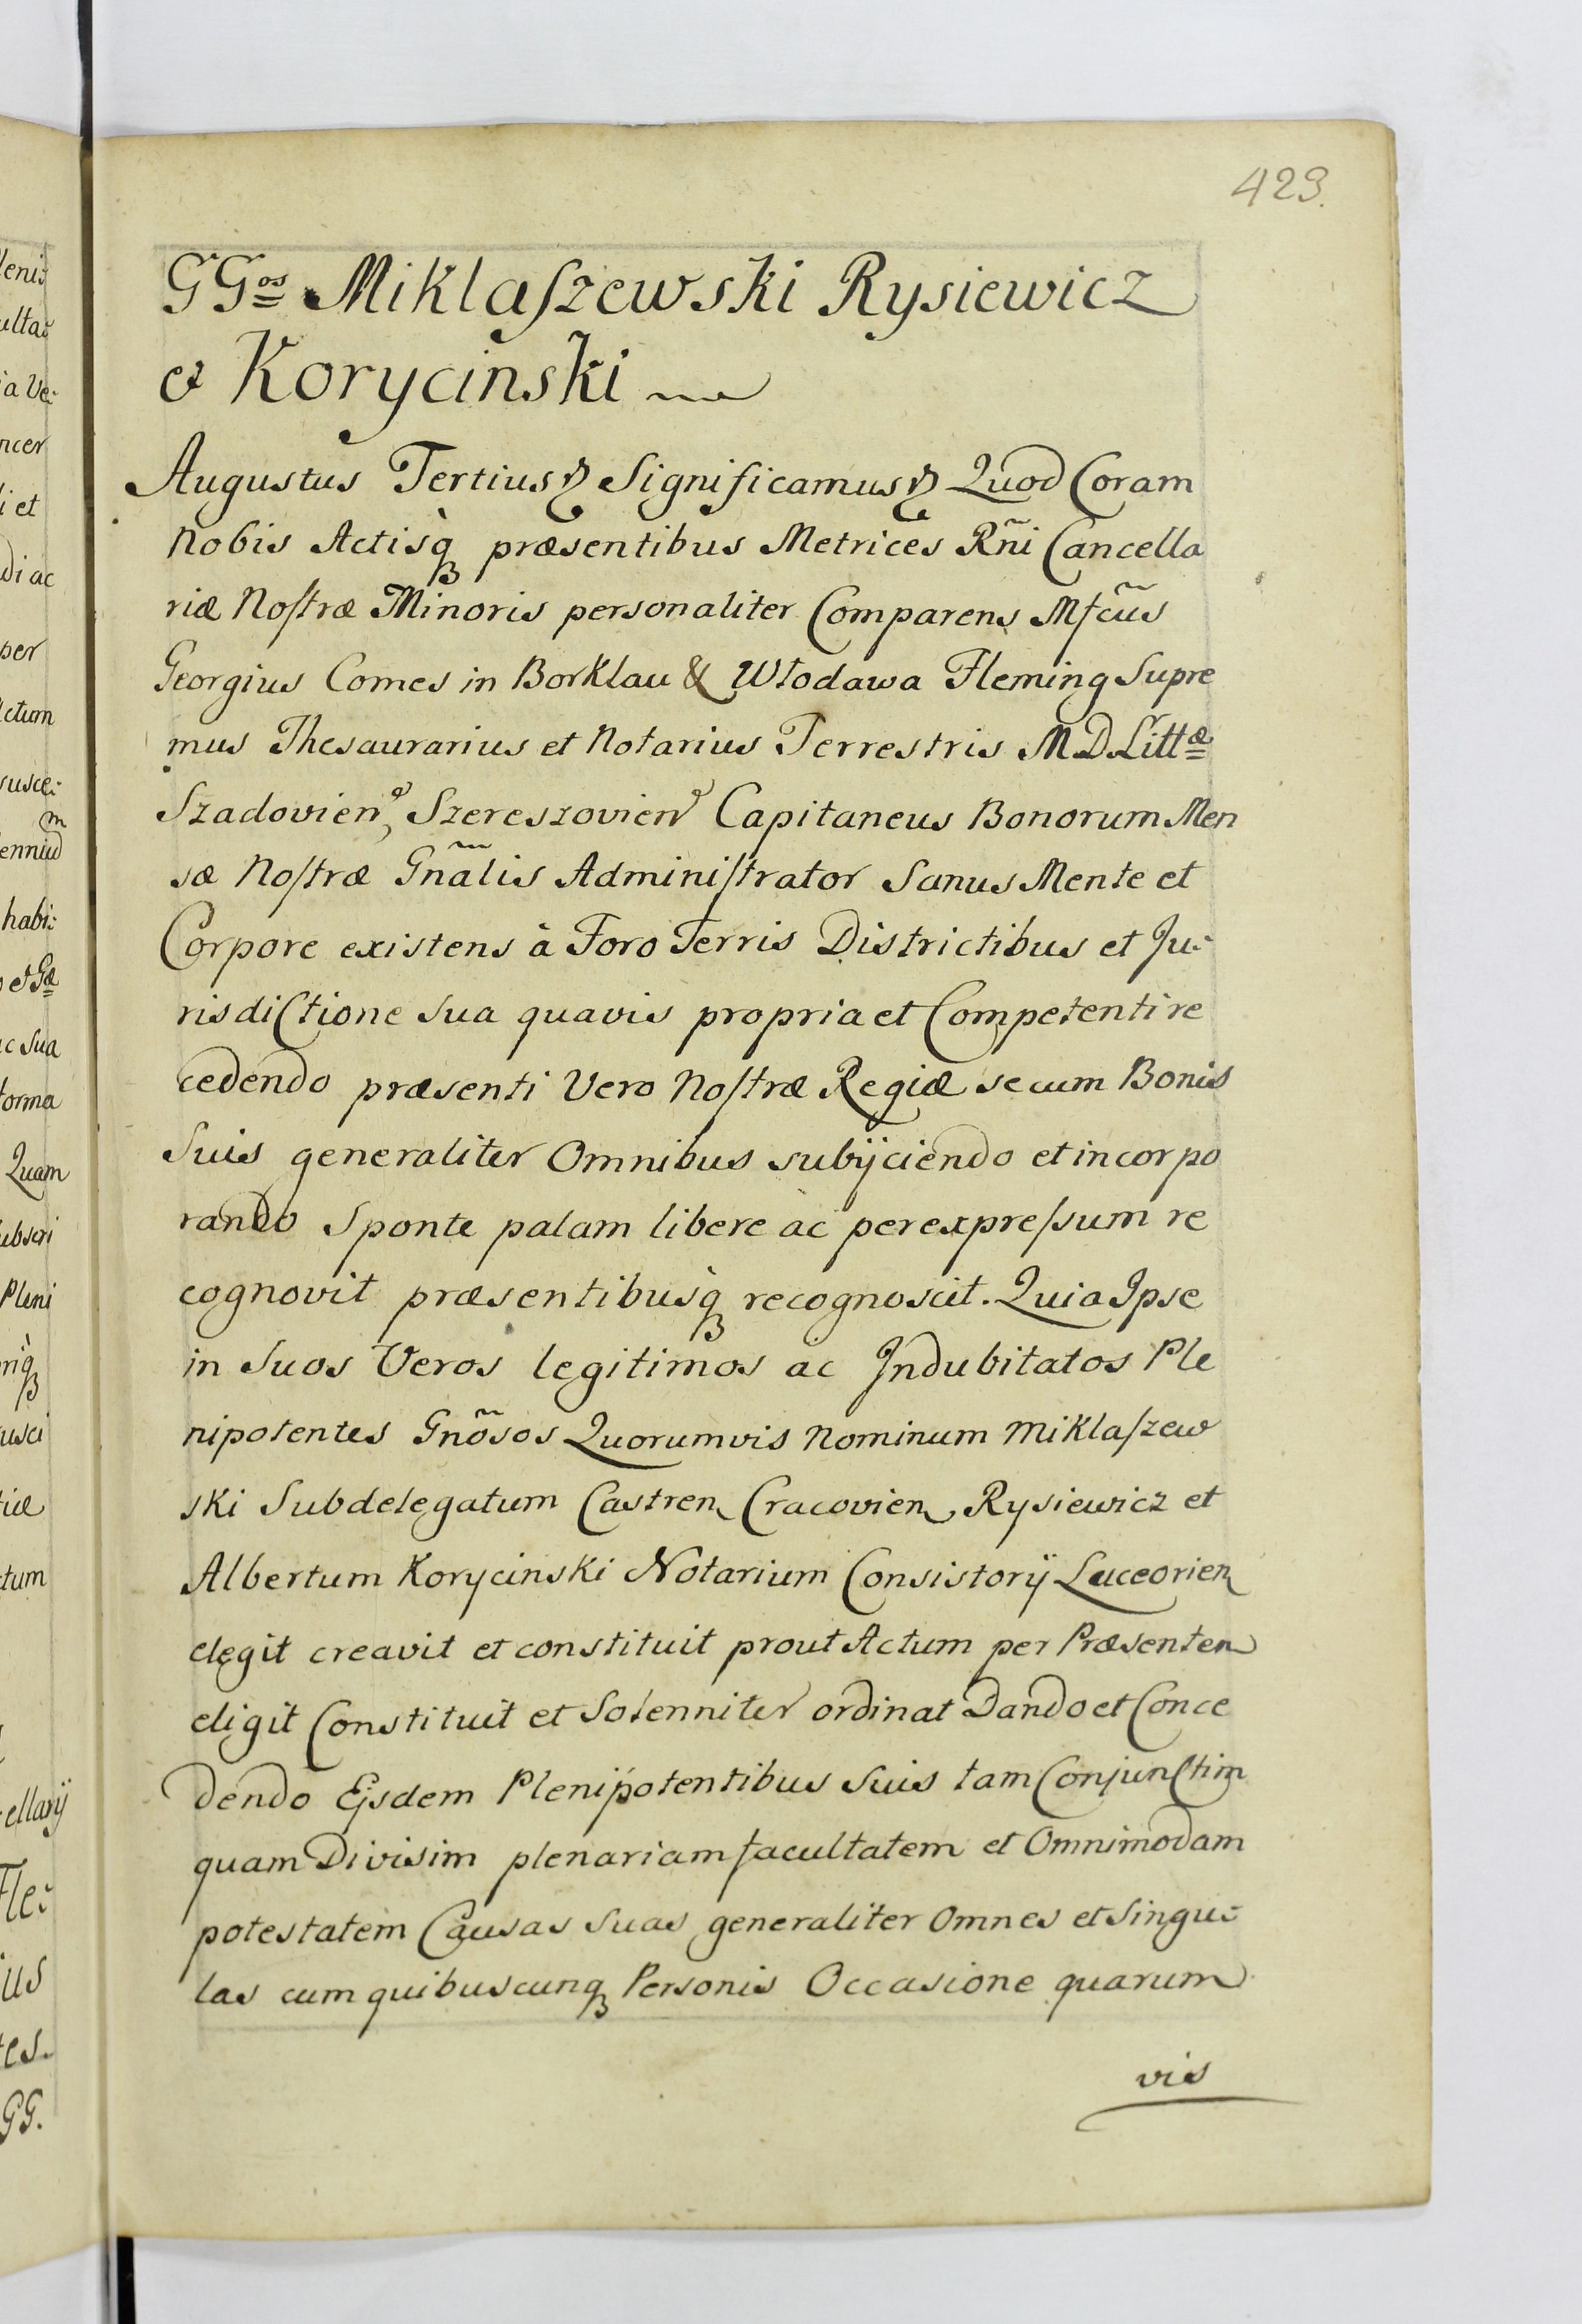 423.
GGos Miklaſzewski Rysiewicz
et Korycinski
Augustus Tertius Significamus Quod Coram
Nobis Actisq̀ præsentibus Metrices Rñi Cancella
riæ Noſtræ Minoris personaliter Comparens Mfcũs
Georgius Comes in Borklau & Włodawa Fleming Supre
mus Thesaurarius et Notarius Terrestris M D Littæ
Szadovien, Szereszovien Capitaneus Bonorum Men
sæ Noſtræ Gñalis Adminiſtrator Sanus Mente et
Corpore existens à Foro Terris Districtibus et Ju-
risdictione Sua quavis propria et Competenti re
cedendo præsenti Vero Noſtræ Regiæ se cum Bonis
Suis generaliter Omnibus subÿciendo et incorpo
rando Sponte palam libere ac per expreſsum re
cognovit præsentibusq̀ recognoscit. Quia Ipse
in Suos Veros legitimos ac Indubitatos Ple
nipotentes Gñosos Quorumvis Nominum Miklaſzew
ski Subdelegatum Castren Cracovien Rysiewicz et
Albertum Korycinski Notarium Consistorÿ Luceorien
elegit creavit et constituit prout Actum per Præsenten
eligit Constituit et Solenniter ordinat Dando et Conce
dendo Ejsdem Plenipotentibus Suis tam Conjunctim
quam Divisim plenariam facultatem et Omnimodam
potestatem Causas Suas generaliter Omnes et Singu-
las cum quibuscunq Personis Occasione quarum
vis
lenis
ultac
ia Ve-
ncer
i et
di ac
per
ctum
susce-
m
habi-
ac Sua
forma
Quam
ubscri
Pleni
usci
tiæ
tum
ellarÿ
Fle-
ius
tes.
GG.